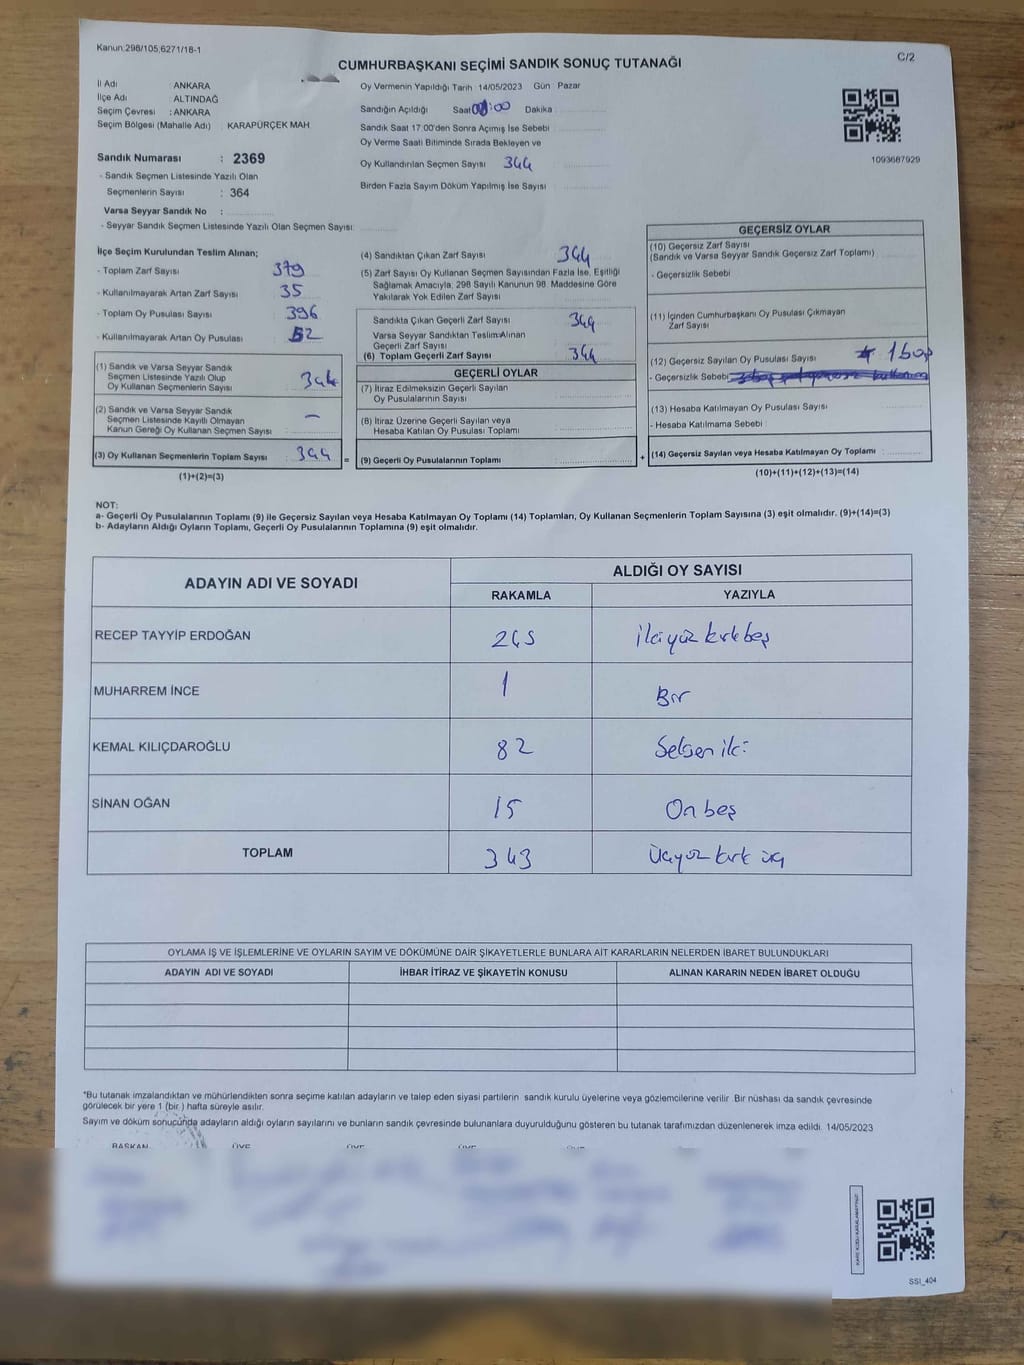 Kanun:298/105,6271/18-1
C/2
CUMHURBAŞKANI SEÇİMİ SANDIK SONUÇ TUTANAĞI
İl Adı ANKARA
İlçe Adı ALTINDAĞ
Seçim Çevresi : ANKARA
Seçim Bölgesi (Mahalle Adı) : KARAPÜRÇEK MAH
Sandık Numarası : 2369
- Sandık Seçmen Listesinde Yazılı Olan
Seçmenlerin Sayısı : 364
Varsa Seyyar Sandık No :
- Seyyar Sandık Seçmen Listesinde Yazılı Olan Seçmen Sayısı:
Oy Vermenin Yapıldığı Tarih 14/05/2023 Gün Pazar
Sandığın Açıldığı Saat :00 Dakika
Sandık Saat 17:00'den Sonra Açımış İse Sebebi
Oy Verme Saati Bitiminde Sırada Bekleyen ve
Oy Kullandırılan Seçmen Sayısı 344
Birden Fazla Sayım Döküm Yapılmış İse Sayısı
1093687929
İlçe Seçim Kurulundan Teslim Alınan;
- Toplam Zarf Sayısı 379
- Kullanılmayarak Artan Zarf Sayısı 35
- Toplam Oy Pusulası Sayısı 396
- Kullanılmayarak Artan Oy Pusulası 52
(1) Sandık ve Varsa Seyyar Sandık
Seçmen Listesinde Yazılı Olup
Oy Kullanan Seçmenlerin Sayısı 344
(2) Sandık ve Varsa Seyyar Sandık
Seçmen Listesinde Kayıtlı Olmayan
Kanun Gereği Oy Kullanan Seçmen Sayısı –
(3) Oy Kullanan Seçmenlerin Toplam Sayısı 344 =
(1)+(2)=(3)
(4) Sandıktan Çıkan Zarf Sayısı 344
(5) Zarf Sayısı Oy Kullanan Seçmen Sayısından Fazla İse, Eşitliği
Sağlamak Amacıyla, 298 Sayılı Kanunun 98. Maddesine Göre
Yakılarak Yok Edilen Zarf Sayısı
Sandıkta Çıkan Geçerli Zarf Sayısı 344
Varsa Seyyar Sandıktan Teslim Alınan
Geçerli Zarf Sayısı
(6) Toplam Geçerli Zarf Sayısı 344
GEÇERLİ OYLAR
(7) İtiraz Edilmeksizin Geçerli Sayılan
Oy Pusulalarının Sayısı
(8) İtiraz Üzerine Geçerli Sayılan veya
Hesaba Katılan Oy Pusulası Toplamı
(9) Geçerli Oy Pusulalarının Toplamı +
GEÇERSİZ OYLAR
(10) Geçersiz Zarf Sayısı
(Sandık ve Varsa Seyyar Sandık Geçersiz Zarf Toplamı)
- Geçersizlik Sebebi
(11) İçinden Cumhurbaşkanı Oy Pusulası Çıkmayan
Zarf Sayısı
(12) Geçersiz Sayılan Oy Pusulası Sayısı 1 boş
- Geçersizlik Sebebi
(13) Hesaba Katılmayan Oy Pusulası Sayısı
- Hesaba Katılmama Sebebi
(14) Geçersiz Sayılan veya Hesaba Katılmayan Oy Toplamı :
(10)+(11)+(12)+(13)=(14)
NOT:
a- Geçerli Oy Pusulalarının Toplamı (9) ile Geçersiz Sayılan veya Hesaba Katılmayan Oy Toplamı (14) Toplamları, Oy Kullanan Seçmenlerin Toplam Sayısına (3) eşit olmalıdır. (9)+(14)=(3)
b- Adayların Aldığı Oyların Toplamı, Geçerli Oy Pusulalarının Toplamına (9) eşit olmalıdır.
ADAYIN ADI VE SOYADI
ALDIĞI OY SAYISI
RAKAMLA YAZIYLA
RECEP TAYYİP ERDOĞAN 245 ikiyüz kırkbeş
MUHARREM İNCE 1 Bir
KEMAL KILIÇDAROĞLU 82 Seksen iki
SİNAN OĞAN 15 On beş
TOPLAM 343 Üçyüz kırk üç
OYLAMA İŞ VE İŞLEMLERİNE VE OYLARIN SAYIM VE DÖKÜMÜNE DAİR ŞİKAYETLERLE BUNLARA AİT KARARLARIN NELERDEN İBARET BULUNDUKLARI
ADAYIN ADI VE SOYADI İHBAR İTİRAZ VE ŞİKAYETİN KONUSU ALINAN KARARIN NEDEN İBARET OLDUĞU
*Bu tutanak imzalandıktan ve mühürlendikten sonra seçime katılan adayların ve talep eden siyasi partilerin sandık kurulu üyelerine veya gözlemcilerine verilir. Bir nüshası da sandık çevresinde
görülecek bir yere 1 (bir ) hafta süreyle asılır.
Sayım ve döküm sonucunda adayların aldığı oyların sayılarını ve bunların sandık çevresinde bulunanlara duyurulduğunu gösteren bu tutanak tarafımızdan düzenlenerek imza edildi. 14/05/2023
BAŞKAN ÜYE ÜYE ÜYE ÜYE
SSI_404